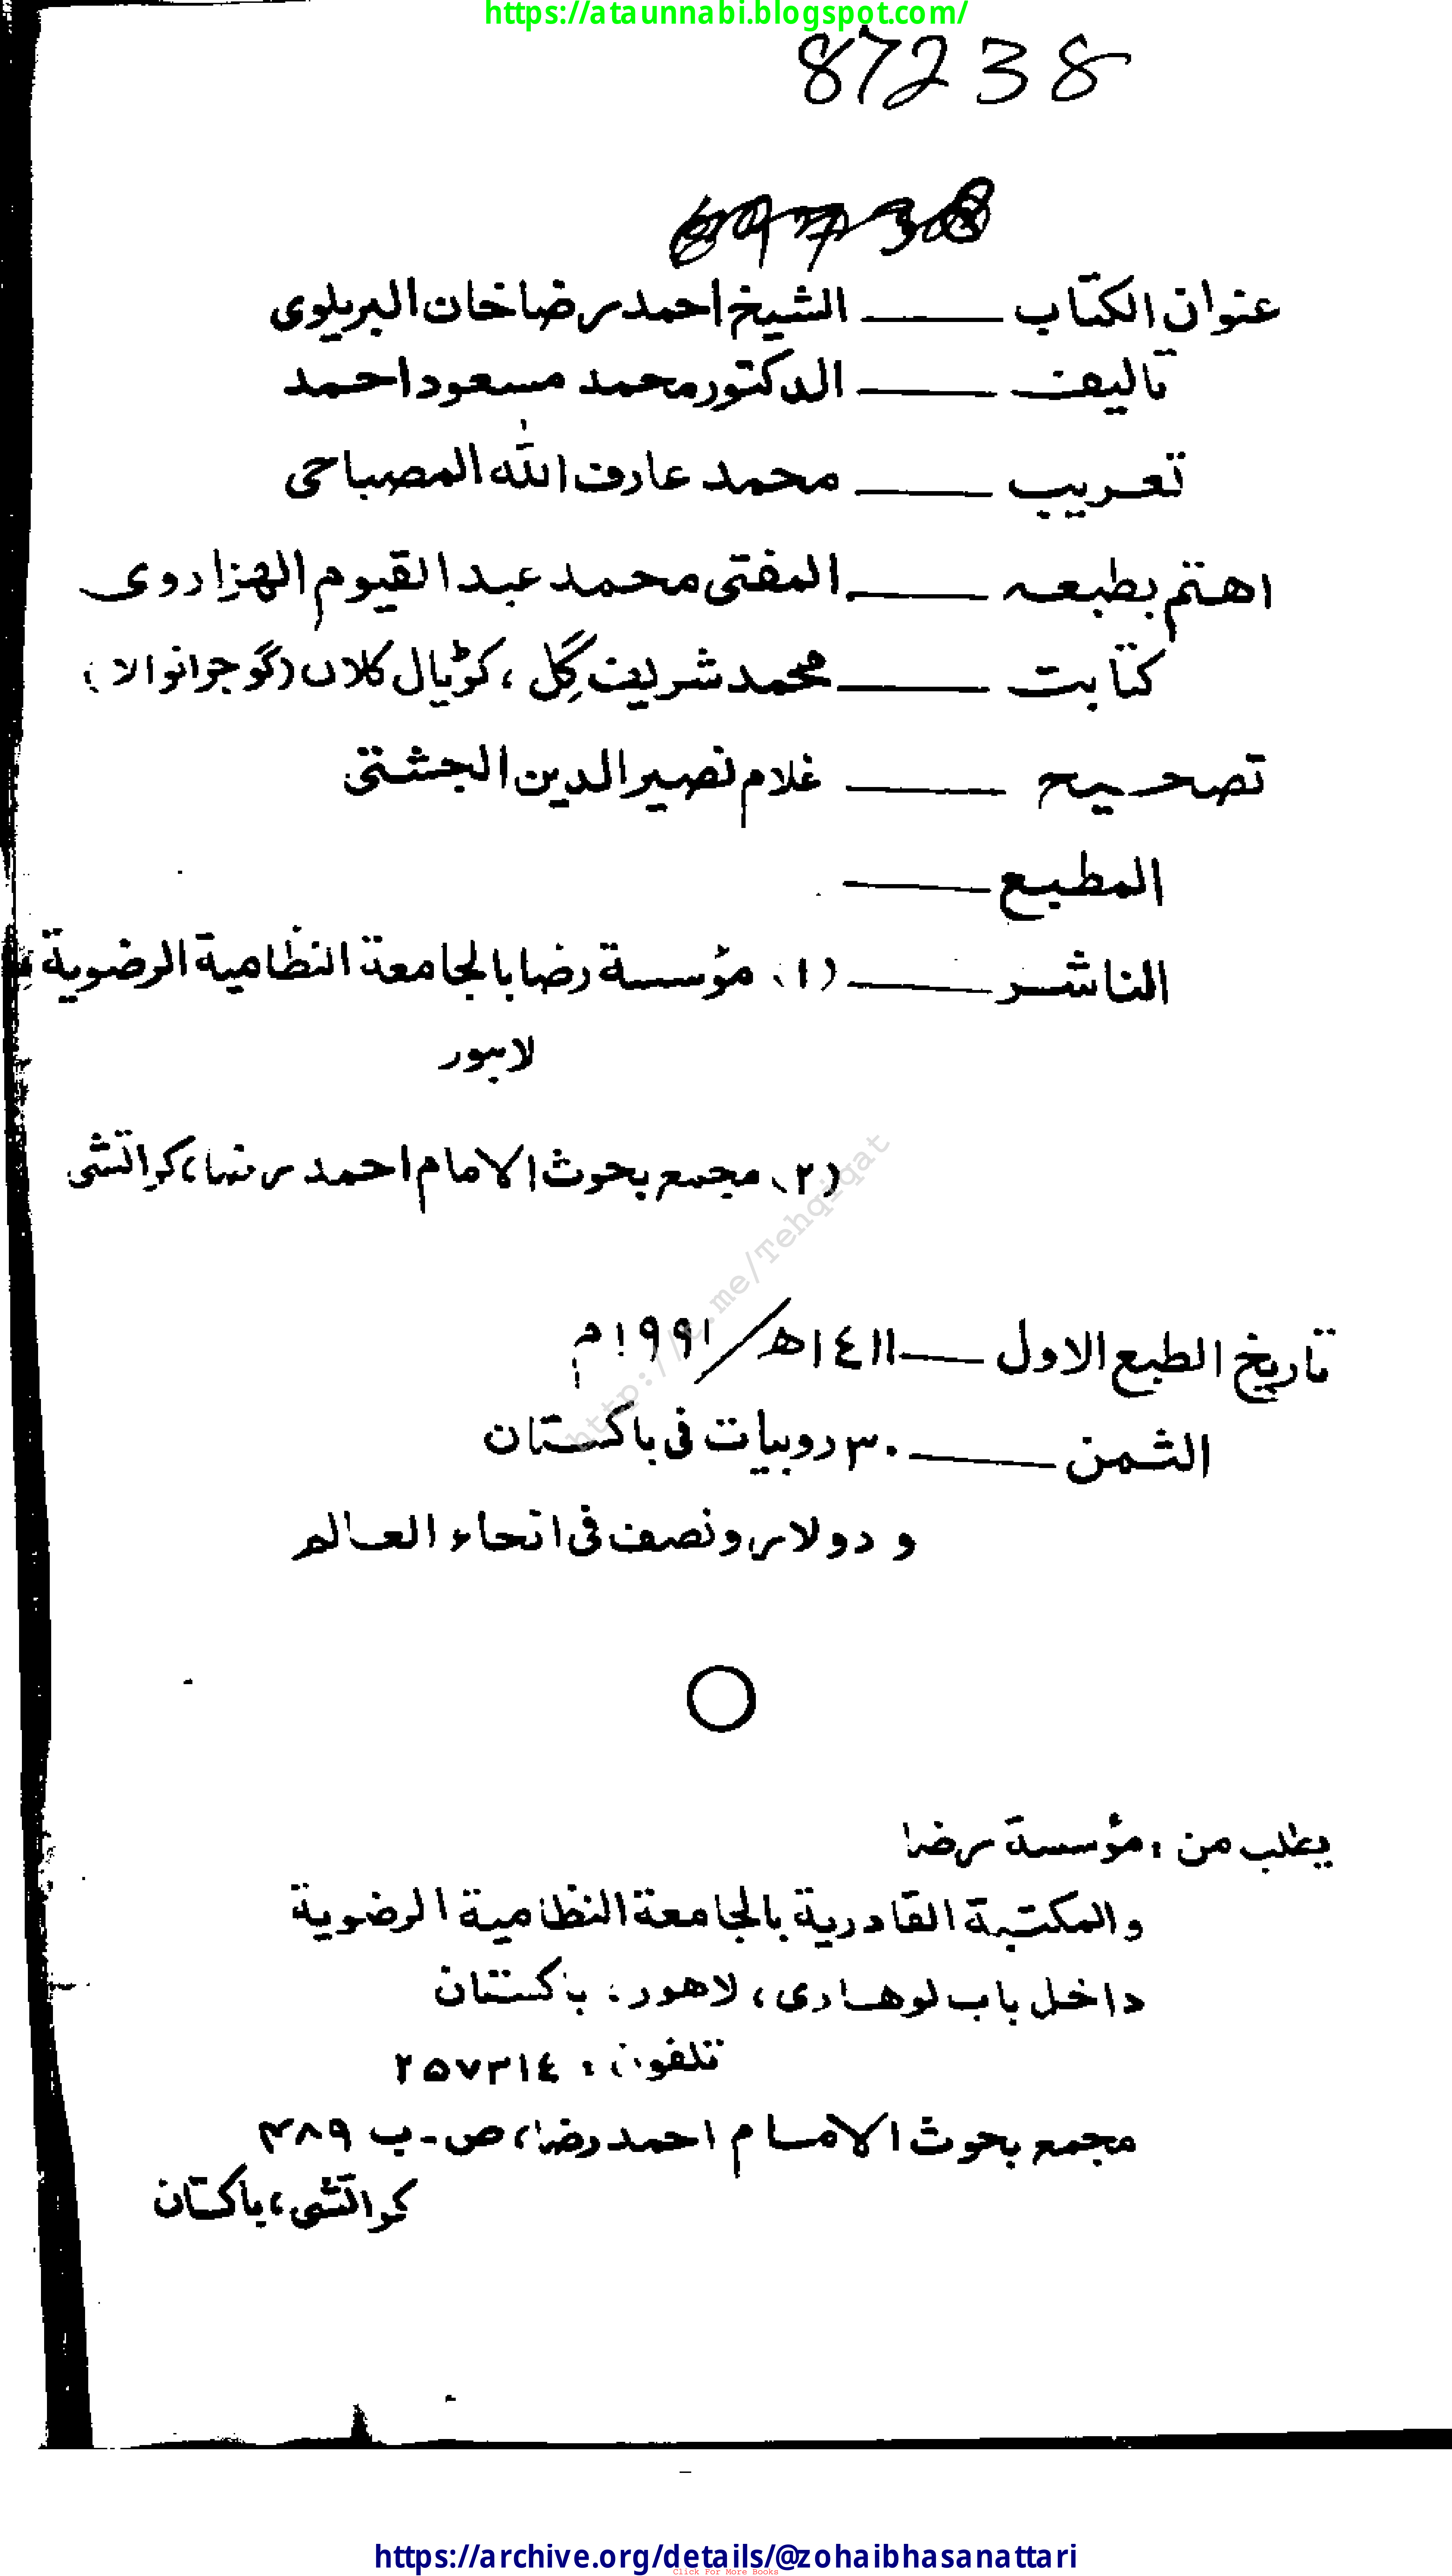 https://ataunnabi.blogspot.com/
87238
عنوان الكتاب ــــــ الشيخ احمد رضا خان البريلوى
تاليف ــــــ الدكتور محمد مسعود احمد
تعريب ــــــ محمد عارف الله المصباحى
اهتم بطبعه ــــــ المفتى محمد عبد القيوم الهزاروى
كتابت ــــــ محمد شريف گِل ، كڑيال كلاں (گوجرانوالا)
تصحيح ــــــ غلام نصير الدين الجشتى
المطبع ــــــ
الناشر ــــــ (١) مؤسسة رضا بالجامعة النظامية الرضوية
لاہور
(٢) مجمع بحوث الامام احمد رضا، كراتشى
تاريخ الطبع الاول ــــــ ١٤١١ھ / ١٩٩١م
الثمن ــــــ ٣٠ روبيات فى باكستان
و دولار ونصف فى انحاء العالم
يطلب من : مؤسسة رضا
والمكتبة القادرية بالجامعة النظامية الرضوية
داخل باب لوهارى ، لاهور : باكستان
تلفون : ٢٥٧٣١٤
مجمع بحوث الامام احمد رضا، ص ـ ب ۴۸۹
كراتشى، باكستان
http://t.me/Tehqiqat
https://archive.org/details/@zohaibhasanattari
Click For More Books